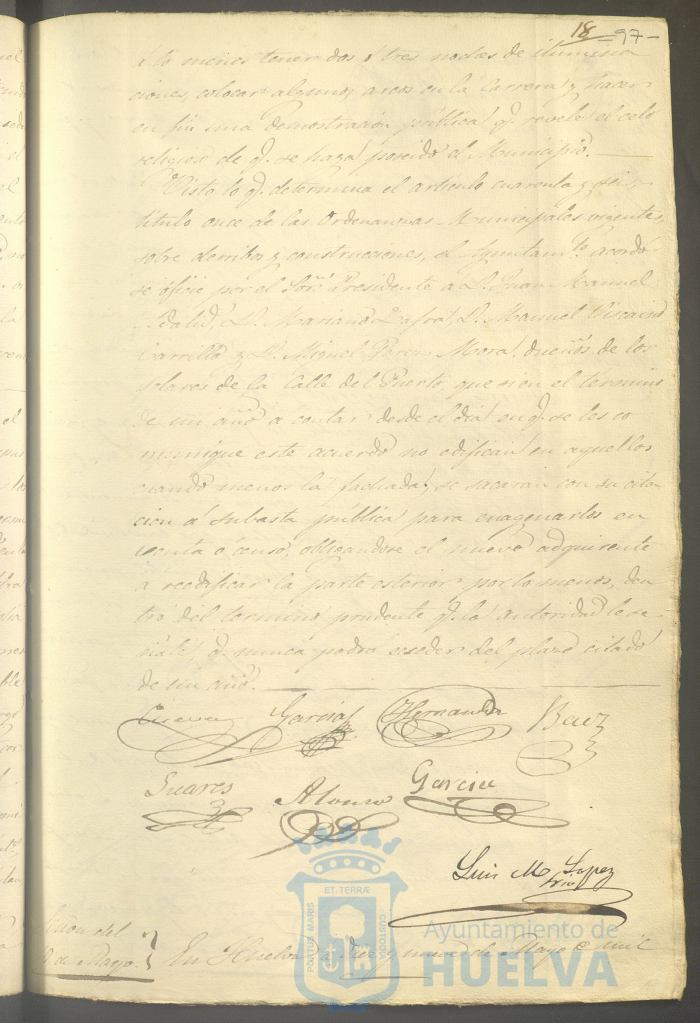 18 97-
á lo menos tener dos ó tres noches de ilumina
ciones, colocar algunos arcos en la Carrera y hacer
en fin una demostracion pública q. revele el celo
religioso de q. se haya poseido el Municipio.
Visto lo q. determina el articulo cuarenta y
titulo once de las Ordenanzas Municipales vigentes,
sobre derribos y construcciones, el Ayuntam.to acordó
se oficie por el Sor. Presidente a D. Juan Manuel
D. Mariano D. Manuel Viscaino
Carrillo, y D. Miguel Perez Mora, dueños de los
solares de la Calle del Puerto, que si en el termino
de un año a contar desde el dia en q. se les co
munique este acuerdo no edifican en aquellos
cuando menos la fachada, se sacaran con su cita
cion á subasta pública para enagenarlos en
venta ó censo, obligandose el nuevo adquirente
á reedificar la parte exterior por lo menos, den
tro del termino prudente q. la autoridad le se
ñale, q. nunca podrá esceder del plazo citado
de un año.
Garcia Hernandez Baez
Suares Alonso Garcia
Luis M. Lopez
Srio
ET TERRÆ
PORTUS MARIS
CUSTODIA
Ayuntamiento de
HUELVA
de Mayo. En Huelva á diez y nueve de Mayo de mil